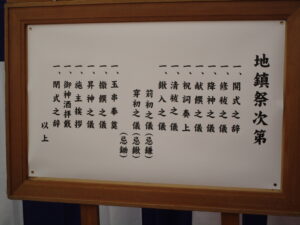 地鎮祭次第
一、開式之辞
一、修祓之儀
一、降神之儀
一、献饌之儀
一、祝詞奏上
一、清祓之儀
一、鍬入之儀
苅初之儀(忌鎌)
穿初之儀(忌鍬)
(忌鋤)
一、玉串奉奠
一、撤饌之儀
一、昇神之儀
一、施主挨拶
一、御神酒拝戴
一、閉式之辞
以上